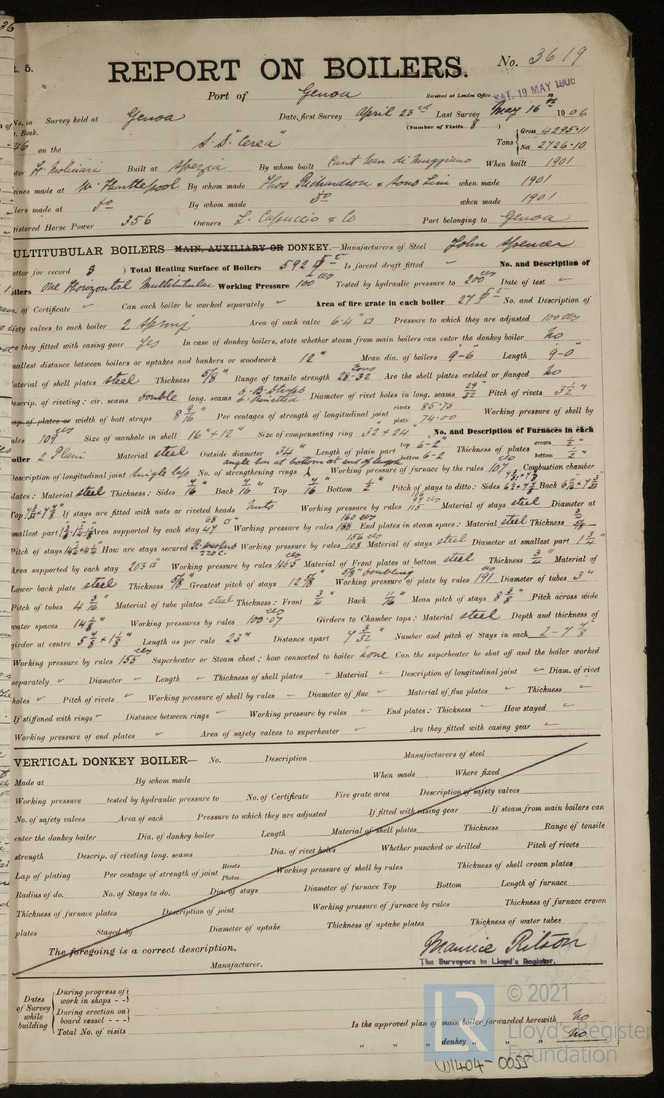 t. 5.
REPORT ON BOILERS.
No. 3619
Port of Genoa
Received at London Office SAT. 19 MAY 1906
No. in Survey held at Genoa Date, first Survey April 23rd Last Survey May 16th 1906
t. Book. (Number of Visits 8)
46 on the S.S. "Cerea" Tons Gross 4295.11 Net 2726.10
ter H. Molinari Built at Spezia By whom built Cant Nav di Muggiano When built 1901
ines made at W. Hartlepool By whom made Thos Richardson & Sons Lim when made 1901
ilers made at do By whom made do when made 1901
istered Horse Power 356 Owners L. Capuccio & Co Port belonging to Genoa
ULTITUBULAR BOILERS MAIN, AUXILIARY OR DONKEY.—Manufacturers of Steel John Spencer
etter for record S) Total Heating Surface of Boilers 592 Is forced draft fitted No. and Description of
oilers One Horizontal Multitubular Working Pressure 100 Tested by hydraulic pressure to 200 Date of test
o. of Certificate Can each boiler be worked separately Area of fire grate in each boiler 27 No. and Description of
afety valves to each boiler 2 Spring Area of each valve 6.4 Pressure to which they are adjusted 100
re they fitted with casing gear Yes In case of donkey boilers, state whether steam from main boilers can enter the donkey boiler No
mallest distance between boilers or uptakes and bunkers or woodwork 12" Mean dia. of boilers 9-6" Length 9-0"
aterial of shell plates steel Thickness 5/8" Range of tensile strength 28-32 Are the shell plates welded or flanged No
escrip. of riveting: cir. seams double long. seams Diameter of rivet holes in long. seams 29/32" Pitch of rivets 3 1/2"
ap of plates or width of butt straps 8 9/16" Per centages of strength of longitudinal joint rivets 85.75 plate 74.00 Working pressure of shell by
rules 109 Size of manhole in shell 16" + 12" Size of compensating ring 32 + 24 No. and Description of Furnaces in each
oiler 2 Plain Material steel Outside diameter 34" Length of plain part top 6-2" bottom 6-2 Thickness of plates crown 1/2" bottom 1/2"
Description of longitudinal joint single lap No. of strengthening rings angle bar at bottom at end of length Working pressure of furnace by the rules 107 Combustion chamber
plates: Material steel Thickness: Sides 9/16" Back 9/16" Top 9/16" Bottom 1/2" Pitch of stays to ditto: Sides Back
Top If stays are fitted with nuts or riveted heads Nuts Working pressure by rules Material of stays steel Diameter at
smallest part Area supported by each stay Working pressure by rules End plates in steam space: Material steel Thickness
Pitch of stays How are stays secured Working pressure by rules Material of stays steel Diameter at smallest part 1 3/4"
Area supported by each stay 203 Working pressure by rules Material of Front plates at bottom steel Thickness 3/4" Material of
Lower back plate steel Thickness 5/8" Greatest pitch of stays 12 5/8" 5/8" doubling Working pressure of plate by rules 191 Diameter of tubes 3"
Pitch of tubes 4 3/16" Material of tube plates steel Thickness: Front 3/4" Back 11/16" Mean pitch of stays 8 3/8" Pitch across wide
water spaces 14 1/8" Working pressures by rules 100.07 Girders to Chamber tops: Material steel Depth and thickness of
girder at centre Length as per rule 23" Distance apart 7 3/32" Number and pitch of Stays in each 2-7 7/8"
Working pressure by rules 155 Superheater or Steam chest; how connected to boiler None Can the superheater be shut off and the boiler worked
separately Diameter Length Thickness of shell plates Material Description of longitudinal joint Diam. of rivet
holes Pitch of rivets Working pressure of shell by rules Diameter of flue Material of flue plates Thickness
If stiffened with rings Distance between rings Working pressure by rules End plates: Thickness How stayed
Working pressure of end plates Area of safety valves to superheater Are they fitted with easing gear
VERTICAL DONKEY BOILER— No. Description Manufacturers of steel
Made at By whom made When made Where fixed
Working pressure tested by hydraulic pressure to No. of Certificate Fire grate area Description of safety valves
No. of safety valves Area of each Pressure to which they are adjusted If fitted with easing gear If steam from main boilers can
enter the donkey boiler Dia. of donkey boiler Length Material of shell plates Thickness Range of tensile
strength Descrip. of riveting long. seams Dia. of rivet holes Whether punched or drilled Pitch of rivets
Lap of plating Per centage of strength of joint Rivets Plates Working pressure of shell by rules Thickness of shell crown plates
Radius of do. No. of Stays to do. Dia. of stays Diameter of furnace Top Bottom Length of furnace
Thickness of furnace plates Description of joint Working pressure of furnace by rules Thickness of furnace crown
plates Stayed by Diameter of uptake Thickness of uptake plates Thickness of water tubes
The foregoing is a correct description,
Manufacturer.
Maurice Ritson
The Surveyors to Lloyd's Register.
Dates of Survey while building
During progress of work in shops - -
During erection on board vessel - - -
Total No. of visits
Is the approved plan of main boiler forwarded herewith No
" " " donkey " " " No
LR
© 2021
Lloyd's Register
Foundation
W1404-0055